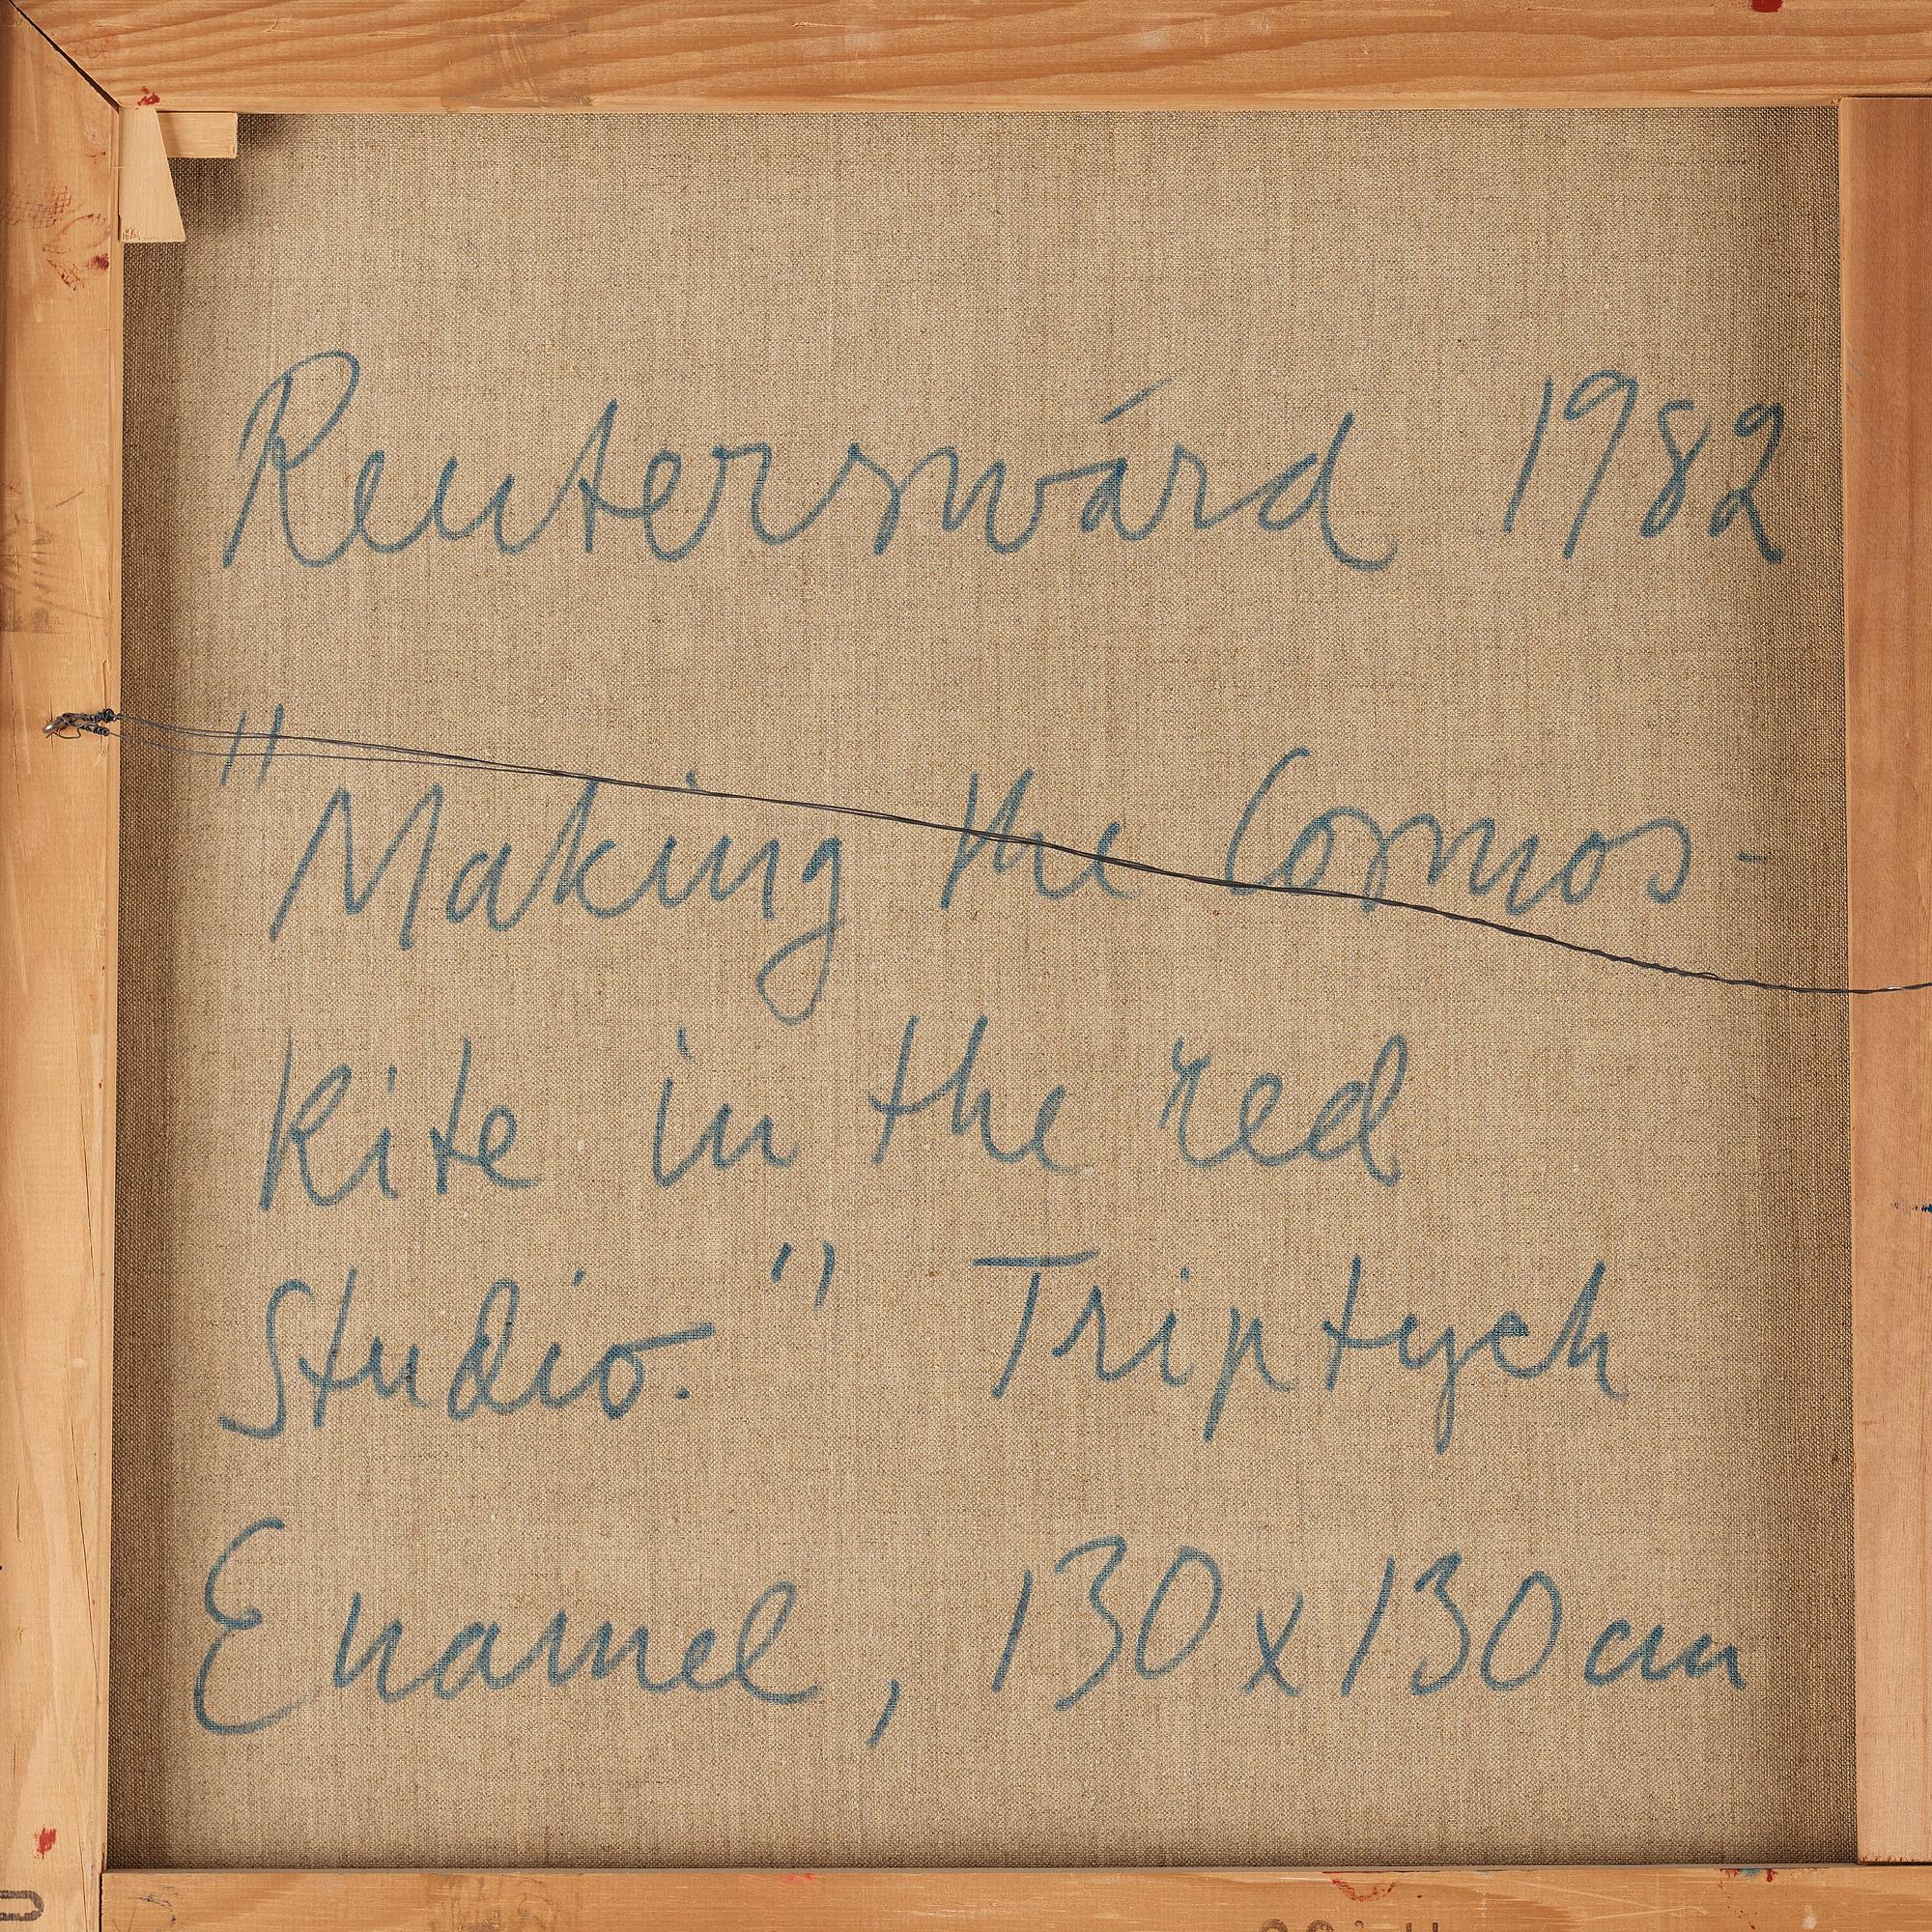 Reuterswárd 1982
"Making the Cosmos-
Kite in the red
Studio." Triptych
Enamel, 130x130cm